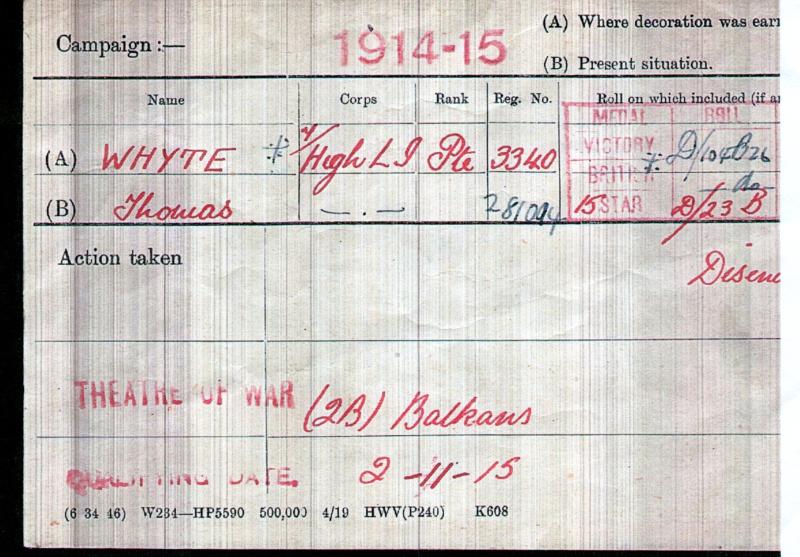 (A) Where decoration was ear
Campaign :— 1914-15
(B) Present situation.
Name Corps Rank Reg. No. Roll on which included (if a
MEDAL ROLL
(A) WHYTE High L I Pte 3340 VICTORY D/104 B26
BRITISH do
(B) Thomas — . — 281094 15 STAR D/23 B
Action taken
Disem
THEATRE OF WAR (2B) Balkans
QUALIFYING DATE. 2-11-15
(6 34 46) W234—HP5590 500,000 4/19 HWV(P240) K608